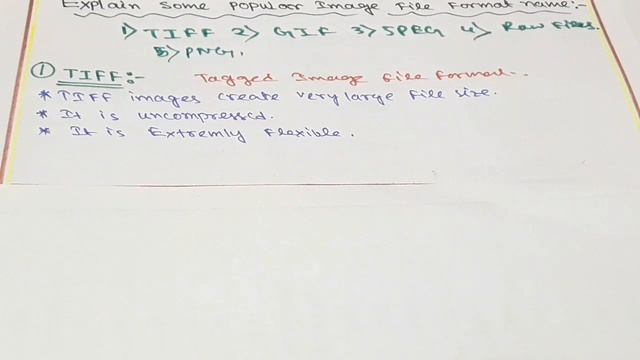 Explain some popular Image file format name:-
1> TIFF 2> GIF 3> JPEG 4> Raw files.
5> PNG.
① TIFF:- Tagged Image file format.
* TIFF images create very large file size.
* It is uncompressed.
* It is Extremly flexible.